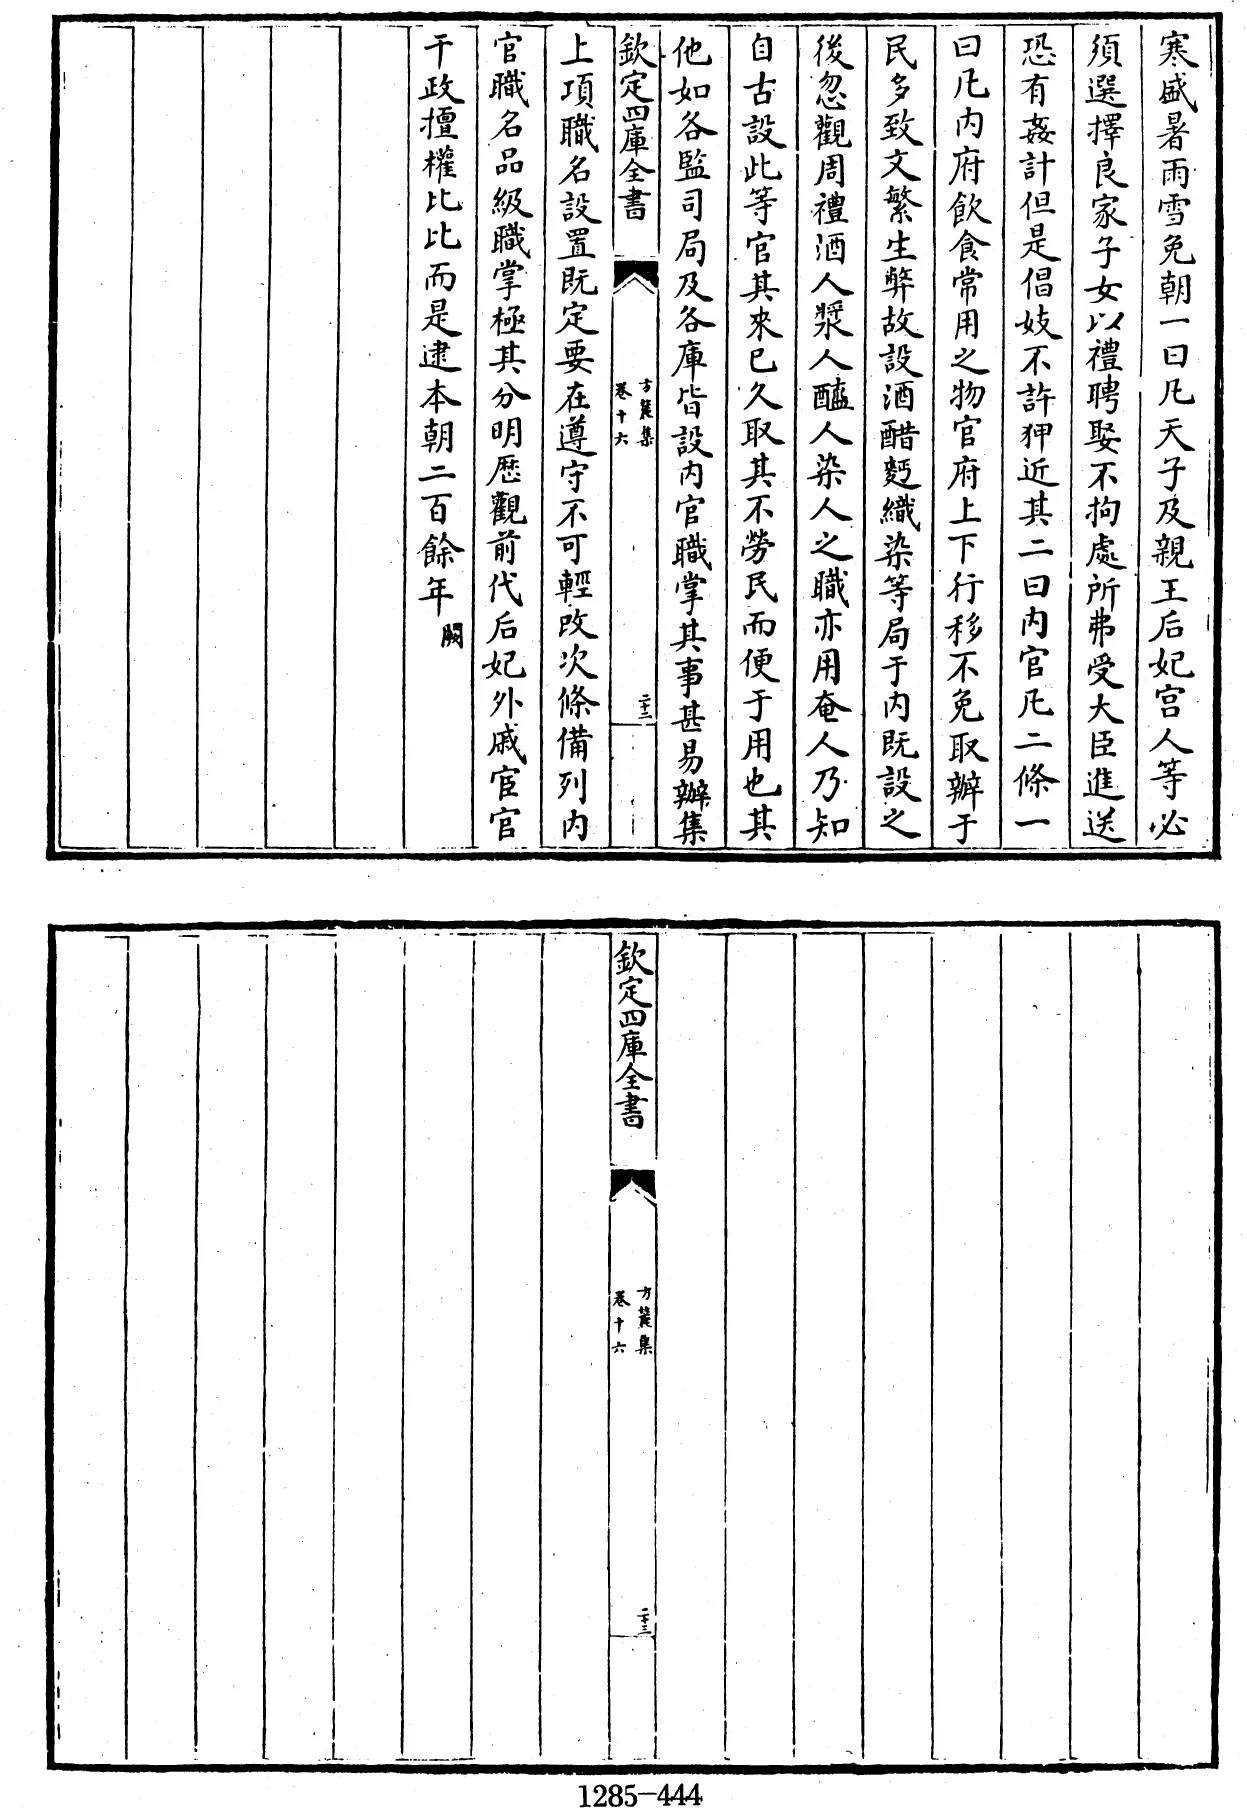 寒盛暑雨雪免朝一曰凡天子及親王后妃宫人等必
須選擇良家子女以禮聘娶不拘處所弗受大臣進送
恐有姦計但是倡妓不許狎近其二曰内官凡二條一
曰凡内府飲食常用之物官府上下行移不免取辦于
民多致文繁生弊故設酒醋麪織染等局于内既設之
後忽觀周禮酒人漿人醯人染人之職亦用奄人乃知
自古設此等官其來已久取其不勞民而便于用也其
他如各監司局及各庫皆設内官職掌其事甚易辦集
欽定四庫全書
方麓集
卷十六
二十三
上項職名設置既定要在遵守不可輕改次條備列内
官職名品級職掌極其分明歷觀前代后妃外戚宦官
干政擅權比比而是逮本朝二百餘年闕
欽定四庫全書
方麓集
卷十六
二十三
1285-444